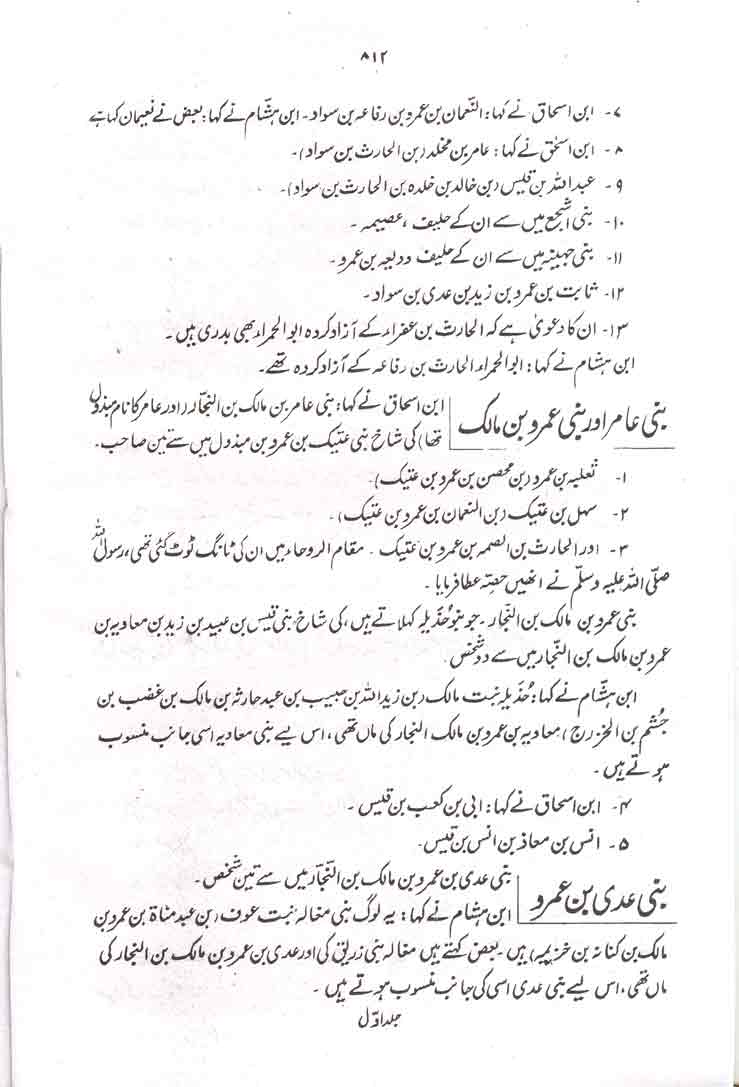 ۸۱۲
۷- ابن اسحاق نے کہا: النعمان بن عمرو بن رفاعہ بن سواد۔ ابن ہشام نے کہا: بعض نے نعیمان کہا ہے
۸- ابن اسحٰق نے کہا: عامر بن مخلد (بن الحارث بن سواد)۔
۹- عبداللہ بن قیس (بن خالد بن خلدہ بن الحارث بن سواد)۔
۱۰- بنی اشجع میں سے ان کے حلیف، عصیمہ۔
۱۱- بنی جہینہ میں سے ان کے حلیف ودیعہ بن عمرو۔
۱۲- ثابت بن عمرو بن زید بن عدی بن سواد۔
۱۳- ان کا دعویٰ ہے کہ الحارث بن عفراء کے آزاد کردہ ابو الحمراء بھی بدری ہیں۔
ابن ہشام نے کہا: ابو الحمراء الحارث بن رفاعہ کے آزاد کردہ تھے۔
بنی عامر اور بنی عمرو بن مالک
ابن اسحاق نے کہا: بنی عامر بن مالک بن النجّار (اور عامر کا نام مبذول
تھا) کی شاخ بنی عتیک بن عمرو بن مبذول میں سے تین صاحب۔
۱- ثعلبہ بن عمرو (بن محصن بن عمرو بن عتیک)۔
۲- سہل بن عتیک (بن النعمان بن عمرو بن عتیک)۔
۳- اور الحارث بن الصمہ بن عمرو بن عتیک۔ مقام الروحاء میں ان کی ٹانگ ٹوٹ گئی تھی، رسول اللہ
صلّی اللہ علیہ وسلّم نے انھیں حصّہ عطا فرمایا۔
بنی عمرو بن مالک بن النجّار۔ جو بنو حُذیلہ کہلاتے ہیں، کی شاخ بنی قیس بن عبید بن زید بن معاویہ بن
عمرو بن مالک بن النجّار میں سے دو شخص۔
ابن ہشّام نے کہا: حُذیلہ بنت مالک (بن زید اللہ بن حبیب بن عبد حارثہ بن مالک بن غضب بن
جُشم بن الخزرج) معاویہ بن عمرو بن مالک النجار کی ماں تھی، اس لیے بنی معاویہ اسی جانب منسوب
ہوتے ہیں۔
۴- ابن اسحاق نے کہا: ابی بن کعب بن قیس۔
۵- انس بن معاذ بن انس بن قیس۔
بنی عدی بن عمرو
بنی عدی بن عمرو بن مالک بن النجّار میں سے تین شخص۔
ابن ہشام نے کہا: یہ لوگ بنی مغالہ بنت عوف (بن عبد مناۃ بن عمرو بن
مالک بن کنانہ بن خزیمہ) ہیں۔ بعض کہتے ہیں مغالہ بنی زریق کی اور عدی بن عمرو بن مالک بن النجار کی
ماں تھی، اس لیے بنی عدی اسی کی جانب منسوب ہوتے ہیں۔
جلد اوّل